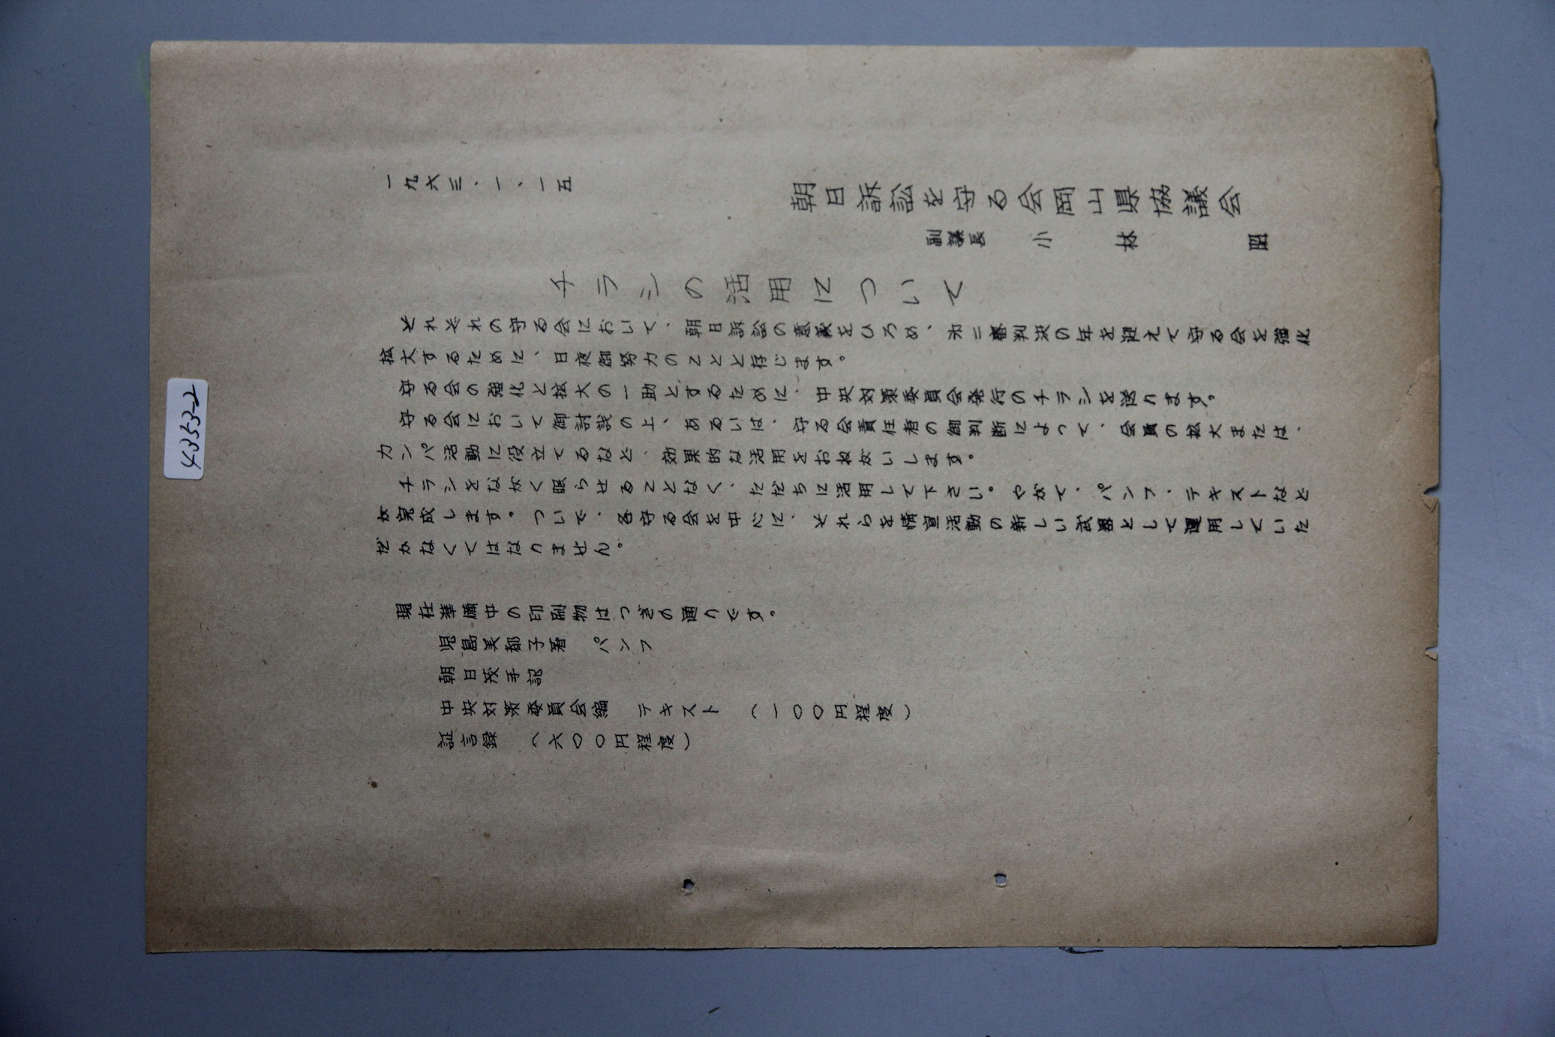 一九六三、一、一五
朝日訴訟を守る会岡山県協議会
副議長 小林 昭
チラシの活用について
それぞれの守る会において、朝日訴訟の意義をひろめ、オ二審判決の年を迎えて守る会を強化
拡大するために、日夜御努力のことと存じます。
守る会の強化と拡大の一助とするために、中央対策委員会発行のチラシを送ります。
守る会において御討議の上、あるいは、守る会責任者の御判断によって、会員の拡大または、
カンパ活動に役立てるなど、効果的な活用をおねがいします。
チラシをながく眠らせることなく、ただちに活用して下さい。やがて、パンフ、テキストなど
が完成します。ついで、各守る会を中心に、それらを情宣活動の新しい武器として運用していた
だかなくてはなりません。
現在準備中の印刷物はつぎの通りです。
児島美都子著 パンフ
朝日茂手記
中央対策委員会編 テキスト (一〇〇円程度)
証言録 (六〇〇円程度)
4353-2